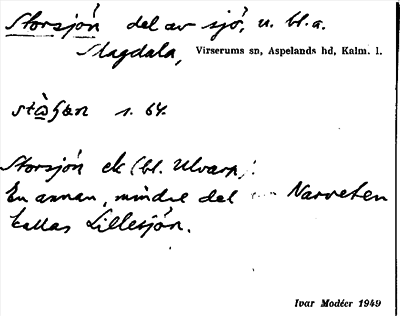 Storsjön del av sjö, u. bl.a.
Slagdala, Virserums sn, Aspelands hd, Kalm. l.
s. 64.
Storsjön ek (bl. Ulvarp).
En annan, mindre del Narveten
kallas Lillesjön.
Ivar Modéer 1949